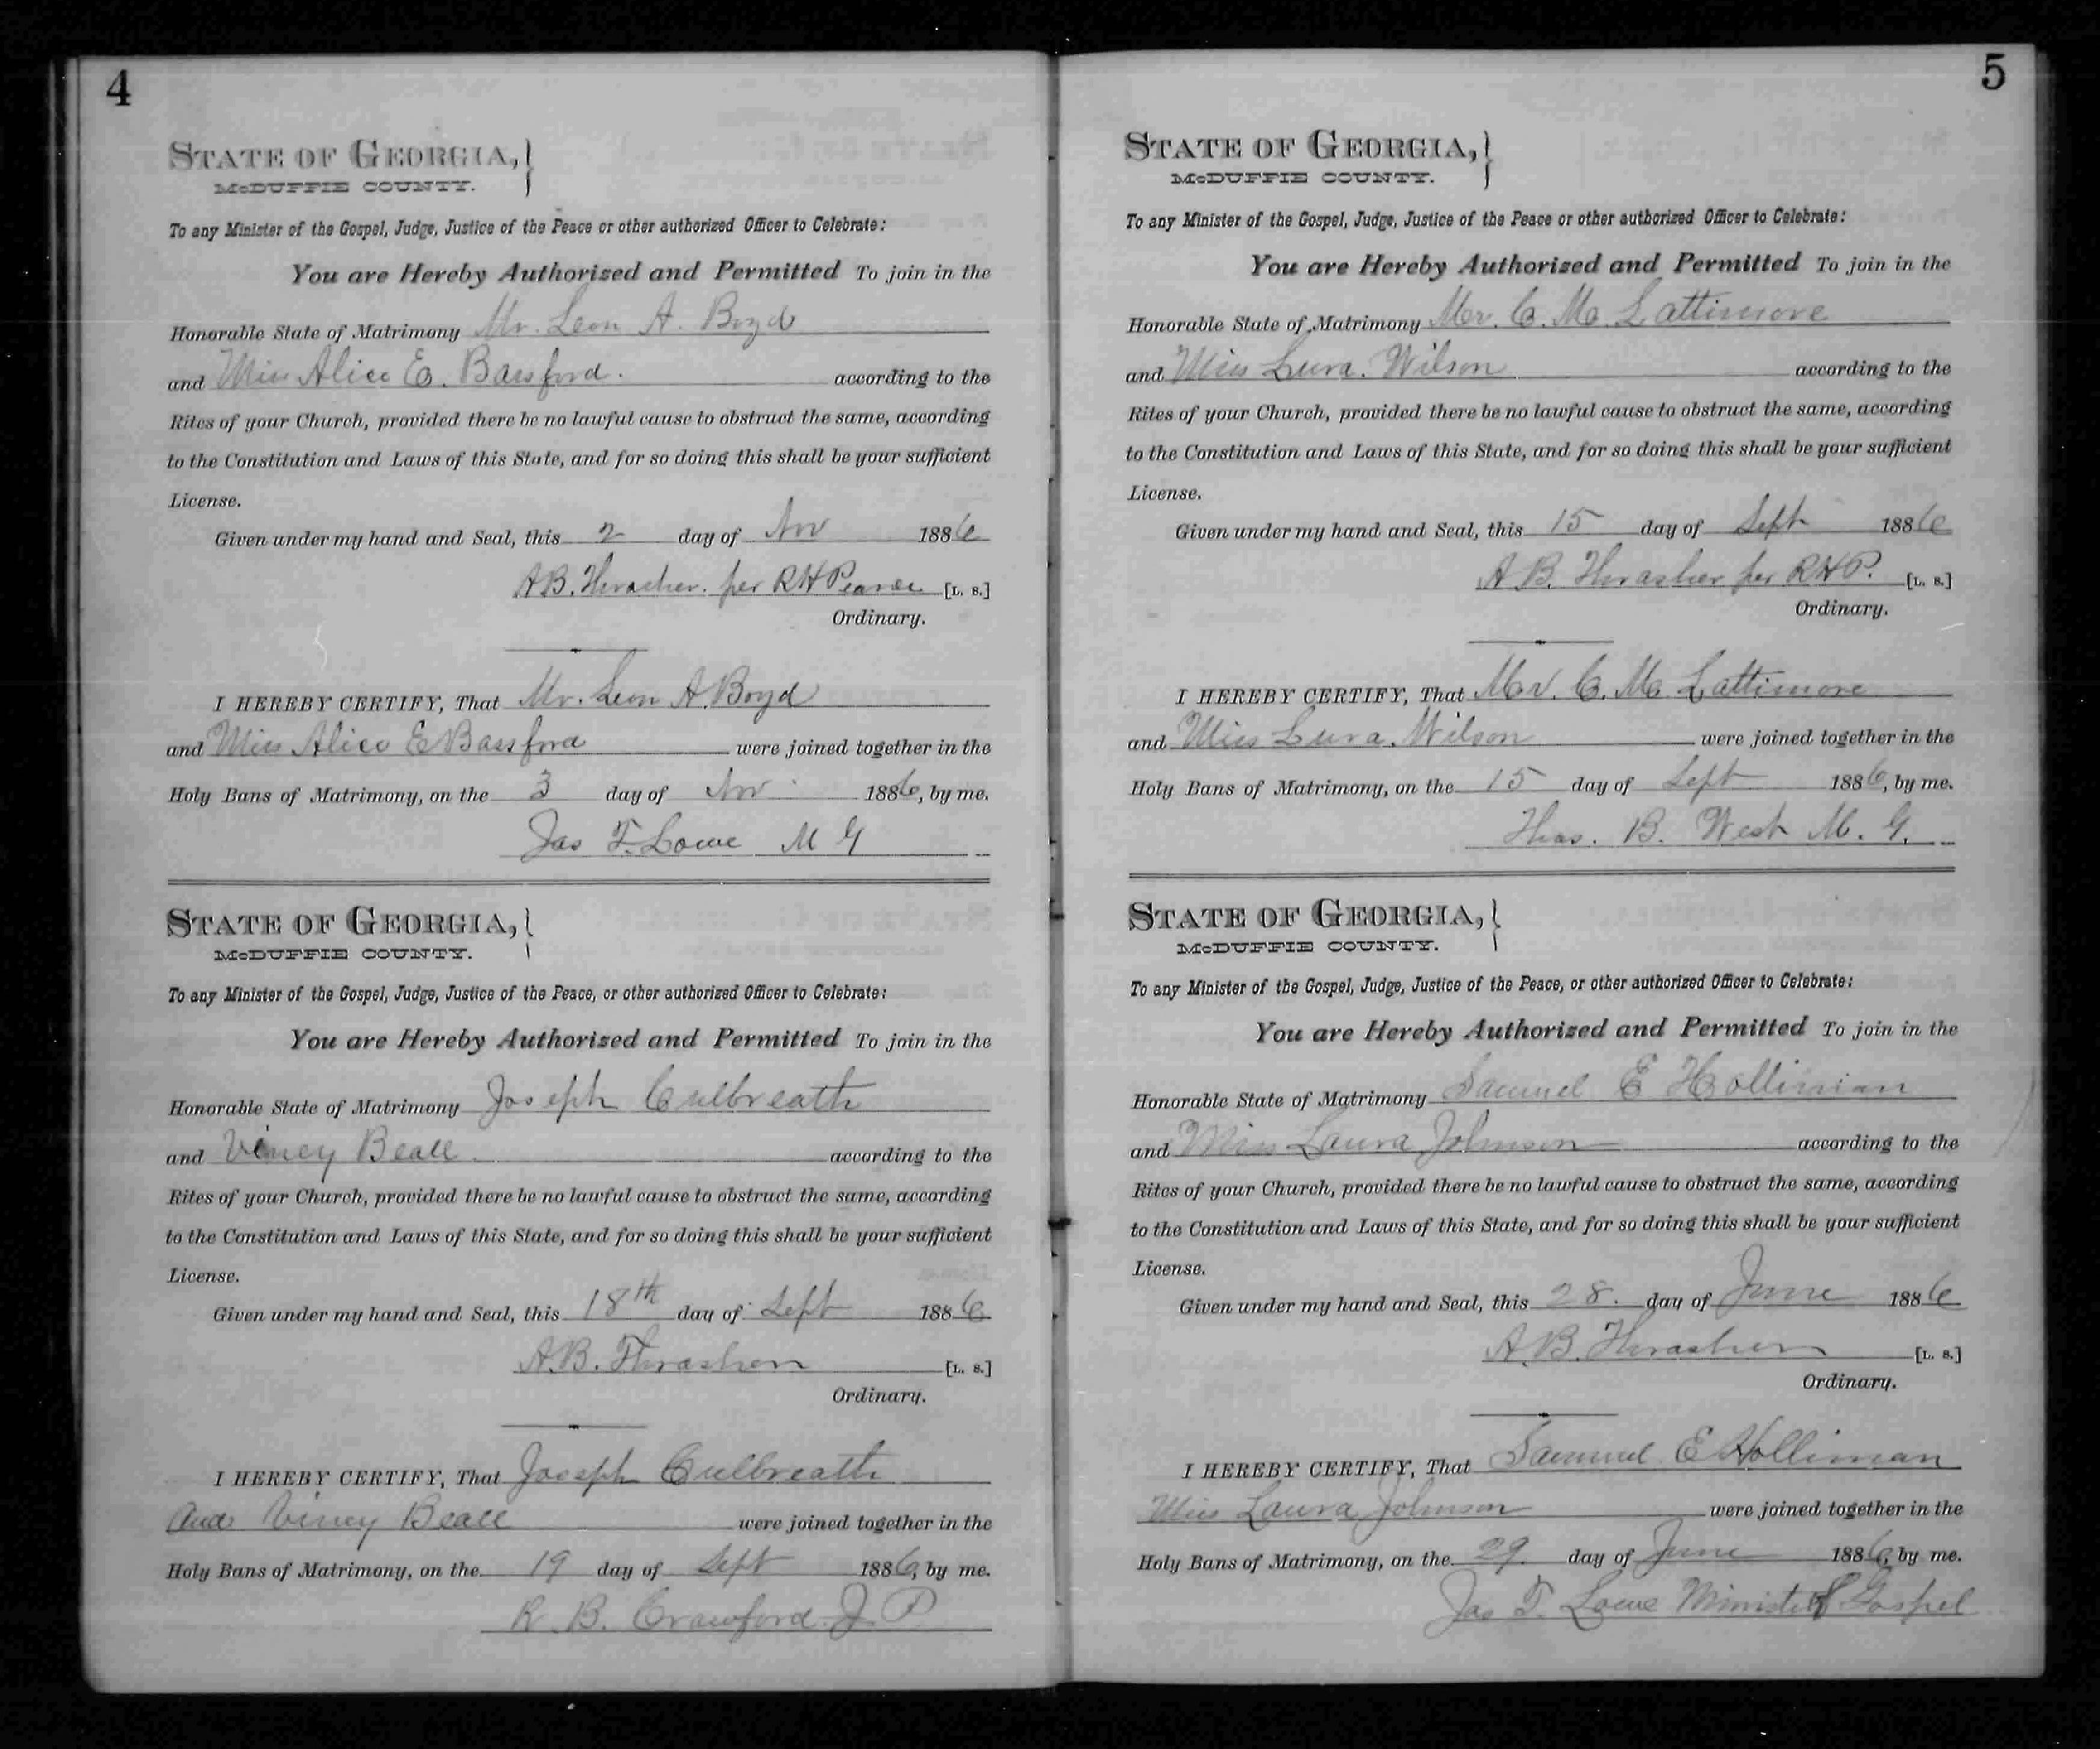 4
STATE OF GEORGIA,
McDUFFIE COUNTY.
To any Minister of the Gospel, Judge, Justice of the Peace or other authorized Officer to Celebrate:
You are Hereby Authorized and Permitted To join in the
Honorable State of Matrimony Mr. Leon A. Boyd
and Miss Alice E. Bassford. according to the
Rites of your Church, provided there be no lawful cause to obstruct the same, according
to the Constitution and Laws of this State, and for so doing this shall be your sufficient
License.
Given under my hand and Seal, this 2 day of Nov 1886
A.B. Thrasher. per R H Pearce [L. S.]
Ordinary.
I HEREBY CERTIFY, That Mr. Leon A. Boyd
and Miss Alice E Bassford were joined together in the
Holy Bans of Matrimony, on the 3 day of Nov 1886, by me.
Jas T. Lowe M G
STATE OF GEORGIA,
McDUFFIE COUNTY.
To any Minister of the Gospel, Judge, Justice of the Peace, or other authorized Officer to Celebrate:
You are Hereby Authorized and Permitted To join in the
Honorable State of Matrimony Joseph Culbreath
and Viney Beall. according to the
Rites of your Church, provided there be no lawful cause to obstruct the same, according
to the Constitution and Laws of this State, and for so doing this shall be your sufficient
License.
Given under my hand and Seal, this 18th day of Sept 1886
A.B. Thrasher [L. S.]
Ordinary.
I HEREBY CERTIFY, That Joseph Culbreath
and Viney Beall were joined together in the
Holy Bans of Matrimony, on the 19 day of Sept 1886, by me.
R. B. Crawford J P
5
STATE OF GEORGIA,
McDUFFIE COUNTY.
To any Minister of the Gospel, Judge, Justice of the Peace or other authorized Officer to Celebrate:
You are Hereby Authorized and Permitted To join in the
Honorable State of Matrimony Mr. C. M. Lattimore
and Miss Lura. Wilson according to the
Rites of your Church, provided there be no lawful cause to obstruct the same, according
to the Constitution and Laws of this State, and for so doing this shall be your sufficient
License.
Given under my hand and Seal, this 15 day of Sept 1886
A B. Thrasher per R H P. [L. S.]
Ordinary.
I HEREBY CERTIFY, That Mr. C. M. Lattimore
and Miss Lura. Wilson were joined together in the
Holy Bans of Matrimony, on the 15 day of Sept 1886, by me.
Thos. B. West M. G.
STATE OF GEORGIA,
McDUFFIE COUNTY.
To any Minister of the Gospel, Judge, Justice of the Peace, or other authorized Officer to Celebrate:
You are Hereby Authorized and Permitted To join in the
Honorable State of Matrimony Samuel E Holliman
and Miss Laura Johnson according to the
Rites of your Church, provided there be no lawful cause to obstruct the same, according
to the Constitution and Laws of this State, and for so doing this shall be your sufficient
License.
Given under my hand and Seal, this 28. day of June 1886
A.B. Thrasher [L. S.]
Ordinary.
I HEREBY CERTIFY, That Samuel E Holliman
Miss Laura Johnson were joined together in the
Holy Bans of Matrimony, on the 29. day of June 1886, by me.
Jas T. Lowe Minister of Gospel